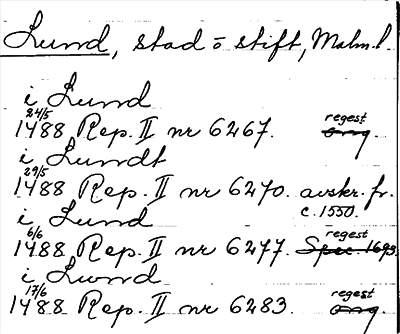 Lund, stad o stift, Malm.l.
i Lund
24/5 regest
1488 Rep. II nr 6267. orig.
i Lundt
29/5
1488 Rep. II nr 6270. avskr. fr.
i Lund c. 1550.
6/6 regest
1488 Rep. II nr 6277. Spec 1693
i Lund
17/6 regest
1488 Rep. II nr 6283. orig.